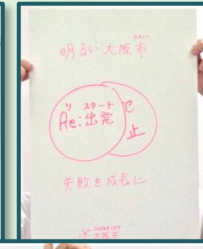 明るい大阪市
リ スタート
Re:出発
犯
止
失敗を成長に
大阪市